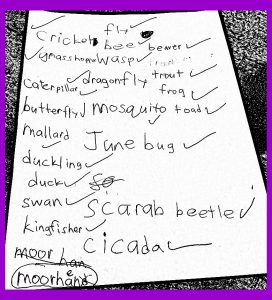 fly
Cricket bee bewer
grasshopper wasp
caterpillar dragonfly trout
frog
butterfly mosquito toad
mallard
June bug
duckling
duck
swan
Scarab beetle
kingfisher
cicada
moor han
moorhen